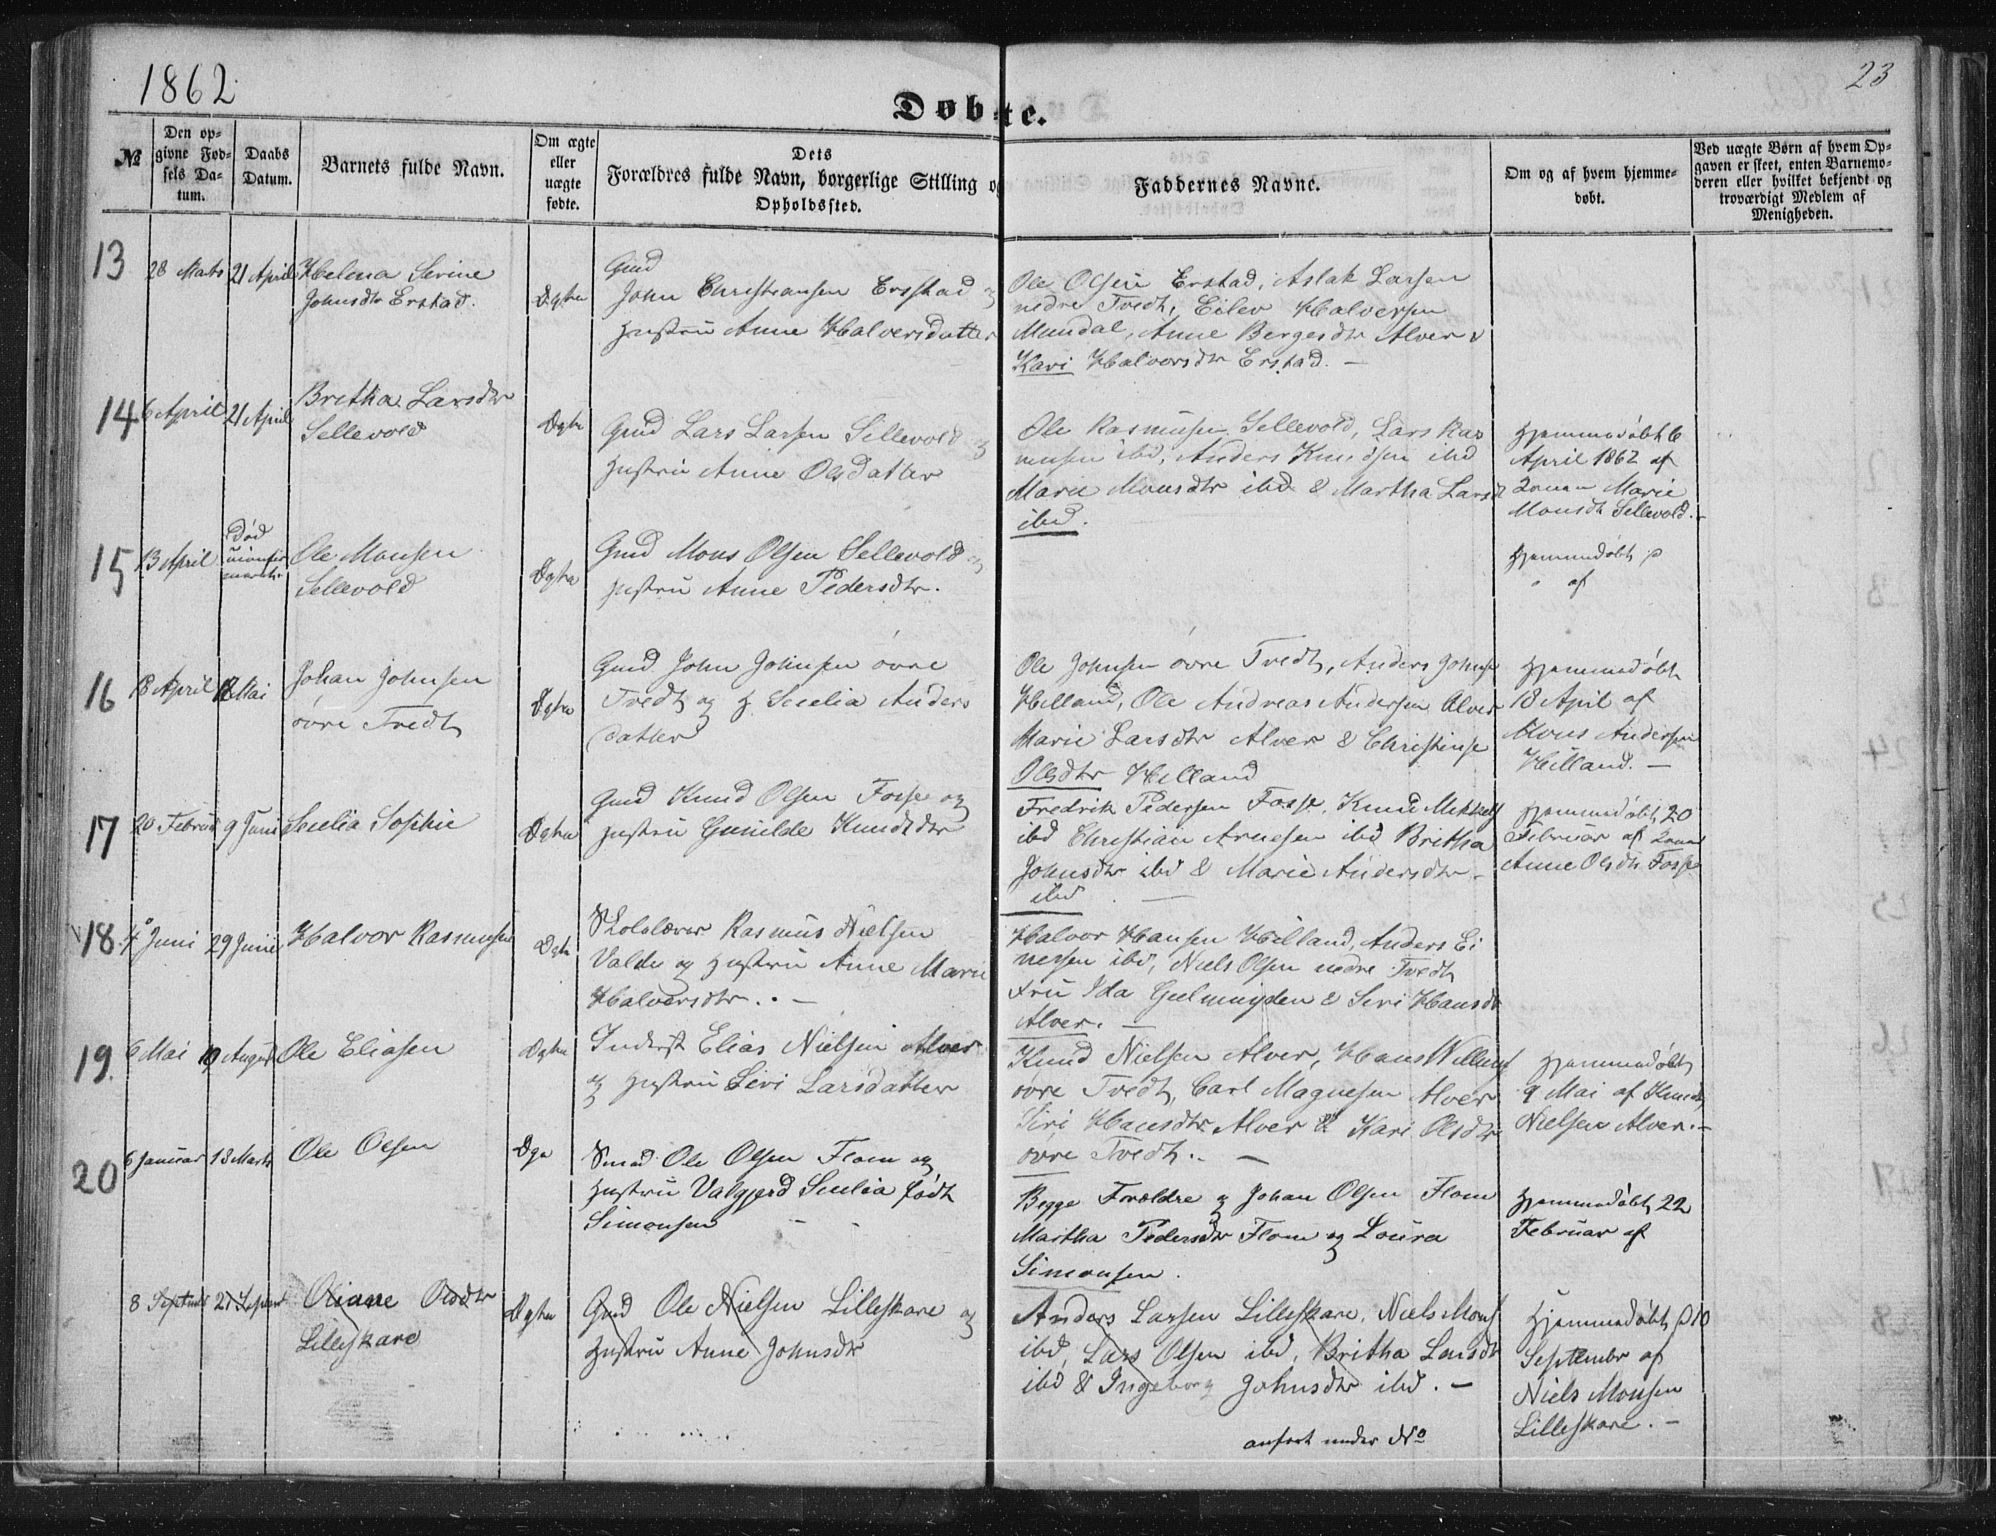 1862
23
Døbte.
№
Den op-
givne Fød-
sels Da-
tum.
Daabs
Datum.
Barnets fulde Navn.
Om ægte
eller
uægte
fødte.
Dets
Forældres fulde Navn, borgerlige Stilling og
Opholdssted.
Faddernes Navne.
Om og af hvem hjemme-
døbt.
Ved uægte Børn af hvem Op-
gaven er skeet, enten Barnemo-
deren eller hvilket bekjendt og
troværdigt Medlem af
Menigheden.
13
28 Marts
21 April
Helena Serine
Johnsdtr Erstad.
Ægte
Gmd
John Christiansen Erstad og
Hustru Anne Halversdatter
Ole Olsen Erstad, Aslak Larsen
nedre Tvedt, Eilev Halversen
Mundal, Anne Bergesdtr Alver &
Kari Halvorsdtr Erstad. —
14
6 April
21 April
Britha Larsdtr
Sellevold
Ægte
Gmd Lars Larsen Sellevold og
Hustru Anne Olsdatter
Ole Rasmusen Sellevold, Lars Ras
musen ibd, Anders Knudsen ibd
Marie Monsdtr ibd & Martha Larsdt
ibd.
Hjemmedøbt 6
April 1862 af
Marie
Monsdt Sellevold. —
15
13 April
Død
Ole Monsen
Sellevold
Ægte
Gmd Mons Olsen Sellevold og
Hustru Anne Pedersdtr.
Hjemmedøbt
af
16
18 April
Mai
Johan Johnsen
øvre Tvedt
Ægte
Gmd John Johnsen øvre
Tvedt og H Sicelia Anders
datter
Ole Johnsen øvre Tvedt, Anders Johnse
Hilland, Ole Andreas Andersen Alver
Marie Larsdtr Alver & Christinse
Olsdtr Hilland
Hjemmedøbt
18 April af
Mons Andersen
Hilland. —
17
20 Februar
9 Juni
Sicelia Sophie
Ægte
Gmd Knud Olsen Fosse og
Hustru Gunilde Knudsdtr
Fredrik Pedersen Fosse, Knud Mikkels
ibd Christian Arnesen ibd Britha
Johnsdtr ibd & Marie Andersdtr
ibd. —
Hjemmedøbt 20
Februar af
Anne Olsdtr Fosse
18
4 Juni
29 Juni
Halvor Rasmusen
Ægte
Skolelærer Rasmus Nielsen
Valde og Hustru Anne Marie
Halversdtr. —
Halvor Hansen Hilland, Anders Ei
nersen ibd, Niels Olsen nedre Tvedt
Fru Ida Geelmuyden & Siri Hansdt
Alver. —
19.
6 Mai
10 August
Ole Eliasen
Ægte
Inderst Elias Nielsen Alver
og Hustru Siri Larsdatter
Knud Nielsen Alver, Hans Willums
øvre Tvedt, Carl Magnesen Alver
Siri Hansdtr Alver & Kari Olsdtr
øvre Tvedt. —
Hjemmedøbt
9 Mai af Knud
Nielsen Alver. —
20
6 Januar
13 Marts
Ole Olsen
Ægte
Smed Ole Olsen Flom og
Hustru Valgjerd Sicelia født
Simonsen
Begge Forældre og Johan Olsen Flom
Martha Pedersdtr Flom og Loura
Simonsen.
Hjemmedøbt 22
Februar af
8 Septembr
21 Septembr
Oliane Olsdtr
Lilleskare
Ægte
Gmd Ole Nielsen Lilleskare og
Hustru Anne Johnsdtr
Anders Larsen Lilleskare, Niels Mons
ibd, Lars Olsen ibd, Britha Larsdt
ibd & Ingeborg Johnsdtr ibd. —
anført under No
Hjemmedøbt 10
Septembr af
Niels Monsen
Lilleskare. —